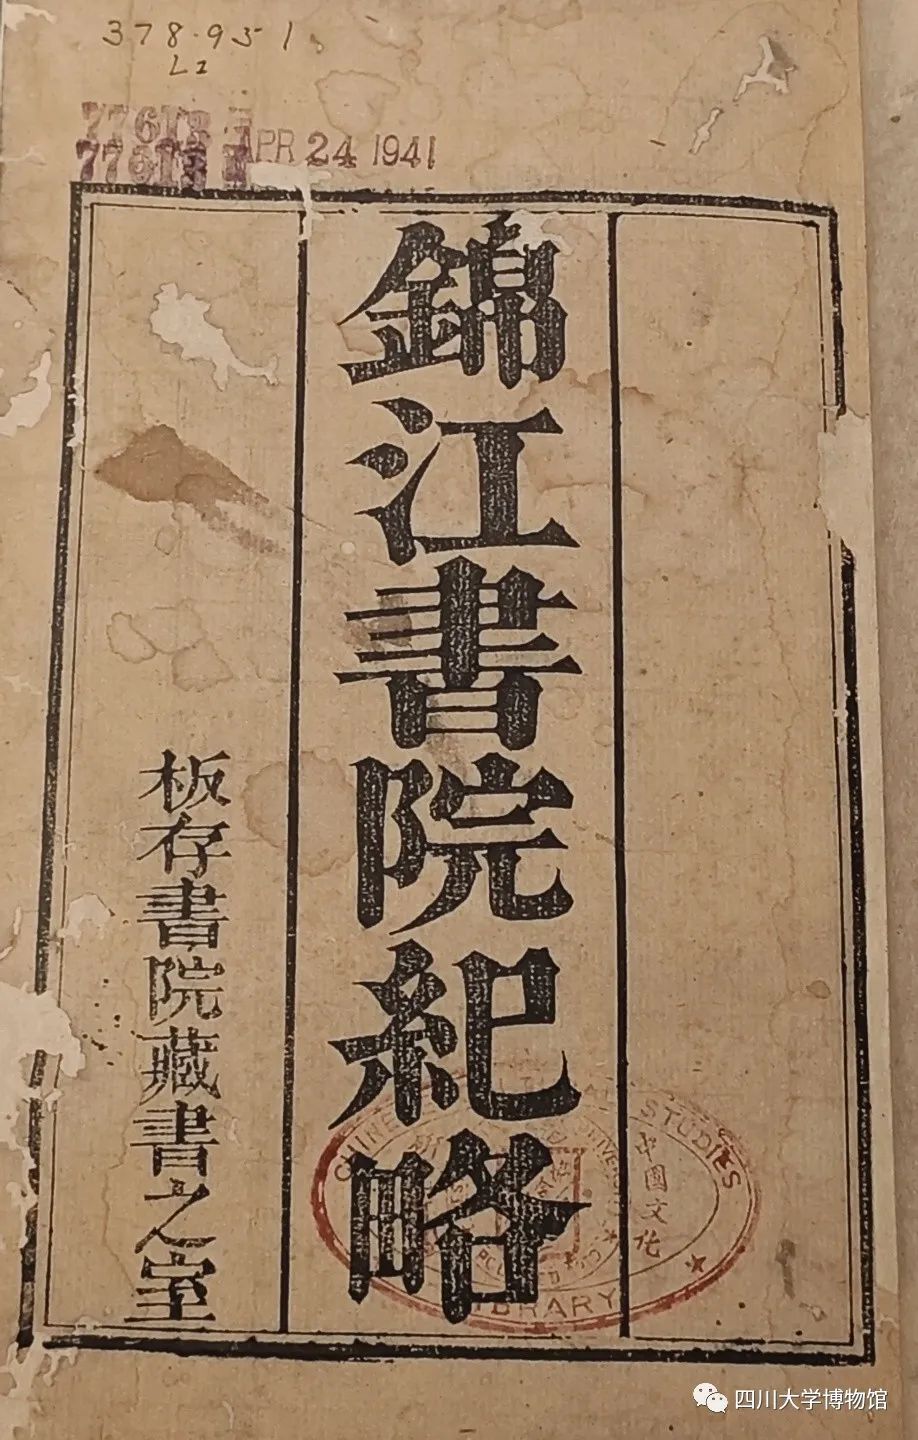 378.951
L2
776TR
776TR
APR 24 1941
錦江書院紀略
板存書院藏書之室
CHINESE CULTURAL STUDIES
中國文化
LIBRARY
四川大学博物馆